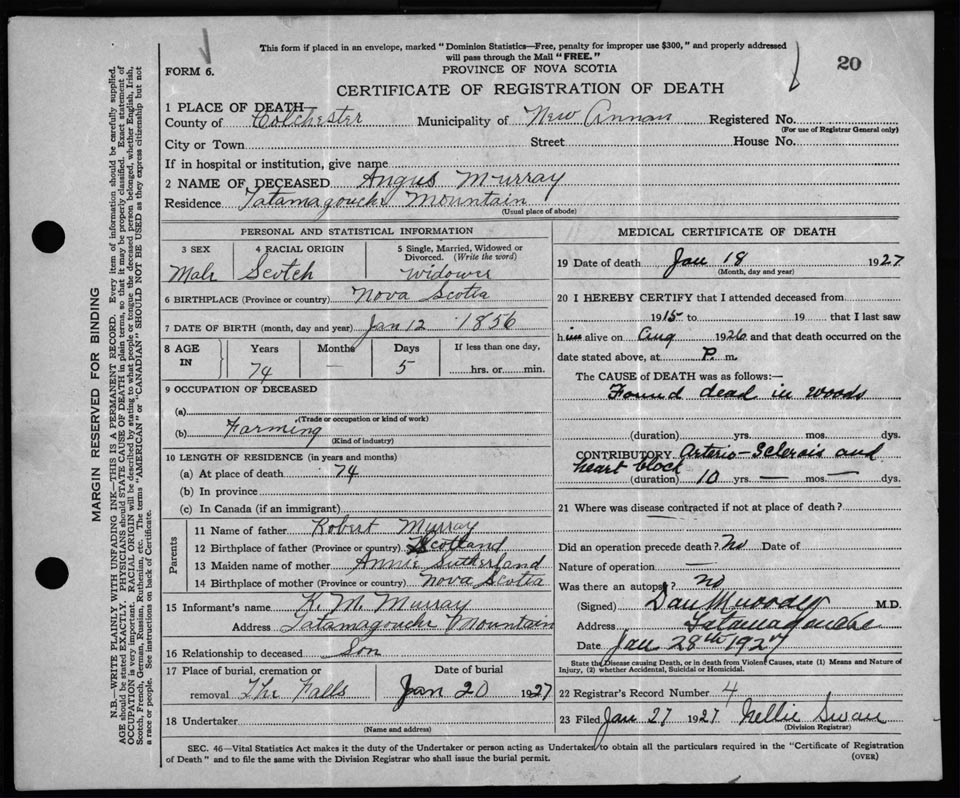 This form if placed in an envelope, marked "Dominion Statistics—Free, penalty for improper use $300," and properly addressed
will pass through the Mail "FREE."
FORM 6.
PROVINCE OF NOVA SCOTIA
20
CERTIFICATE OF REGISTRATION OF DEATH
1 PLACE OF DEATH
County of Colchester Municipality of New Annan Registered No.
(For use of Registrar General only)
City or Town Street House No.
If in hospital or institution, give name
2 NAME OF DECEASED Angus Murray
Residence Tatamagouche Mountain
(Usual place of abode)
PERSONAL AND STATISTICAL INFORMATION
3 SEX 4 RACIAL ORIGIN 5 Single, Married, Widowed or
Divorced. (Write the word)
Male Scotch Widower
6 BIRTHPLACE (Province or country) Nova Scotia
7 DATE OF BIRTH (month, day and year) Jan 12 1856
8 AGE IN Years Months Days If less than one day,
74 — 5 hrs. or min.
9 OCCUPATION OF DECEASED
(a)
(Trade or occupation or kind of work)
(b) Farming
(Kind of industry)
10 LENGTH OF RESIDENCE (in years and months)
(a) At place of death 74
(b) In province
(c) In Canada (if an immigrant)
Parents
11 Name of father Robert Murray
12 Birthplace of father (Province or country) Scotland
13 Maiden name of mother Annie Sutherland
14 Birthplace of mother (Province or country) Nova Scotia
15 Informant's name K. M. Murray
Address Tatamagouche Mountain
16 Relationship to deceased Son
17 Place of burial, cremation or Date of burial
removal The Falls Jan 20 1927
18 Undertaker
(Name and address)
MEDICAL CERTIFICATE OF DEATH
19 Date of death Jan 18 1927
(Month, day and year)
20 I HEREBY CERTIFY that I attended deceased from
1915 to 19 that I last saw
him alive on Aug 1926 and that death occurred on the
date stated above, at P. m.
The CAUSE of DEATH was as follows:—
Found dead in woods
(duration) yrs. mos. dys.
CONTRIBUTORY Arterio-Sclerosis and
heart block
(duration) 10 yrs. — mos. — dys.
21 Where was disease contracted if not at place of death?
Did an operation precede death? No Date of
Nature of operation —
Was there an autopsy? no
(Signed) Dan Murray M.D.
Address Tatamagouche
Date Jan 28th 1927
State the Disease causing Death, or in death from Violent Causes, state (1) Means and Nature of
Injury, (2) whether Accidental, Suicidal or Homicidal.
22 Registrar's Record Number 4
23 Filed Jan 27 1927 Nellie Swan
(Division Registrar)
SEC. 46—Vital Statistics Act makes it the duty of the Undertaker or person acting as Undertaker to obtain all the particulars required in the "Certificate of Registration
of Death" and to file the same with the Division Registrar who shall issue the burial permit.
(OVER)
MARGIN RESERVED FOR BINDING
N.B.—WRITE PLAINLY WITH UNFADING INK—THIS IS A PERMANENT RECORD. Every item of information should be carefully supplied.
AGE should be stated EXACTLY. PHYSICIANS should STATE CAUSE OF DEATH in plain terms, so that it may be properly classified. Exact statement of
OCCUPATION is very important. RACIAL ORIGIN will be described by stating to what people or tongue the deceased person belonged, whether English, Irish,
Scotch, French, German, Russian, Ruthenian, etc. The terms "AMERICAN" or "CANADIAN" SHOULD NOT BE USED as they express citizenship but not
a race or people. See instructions on back of Certificate.